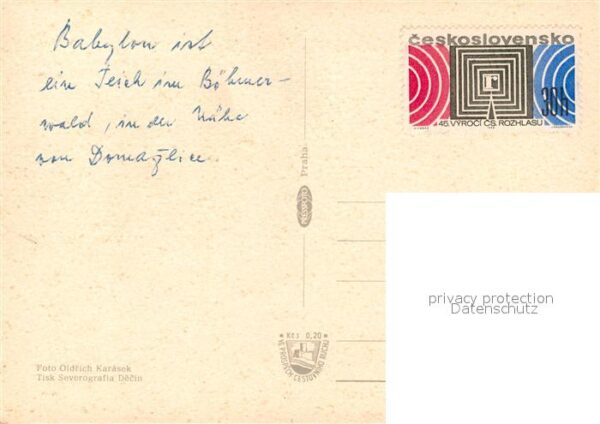 Babylon ist
ein Teich im Böhmer-
wald, in der Nähe
von Domažlice
československo
30h
45. VÝROČÍ ČS. ROZHLASU
Praha
PRESSFOTO
privacy protection
Datenschutz
* Kčs 0,20 *
VE PROSPĚCH CESTOVNÍHO RUCHU
Foto Oldřich Karásek
Tisk Severografia Děčín